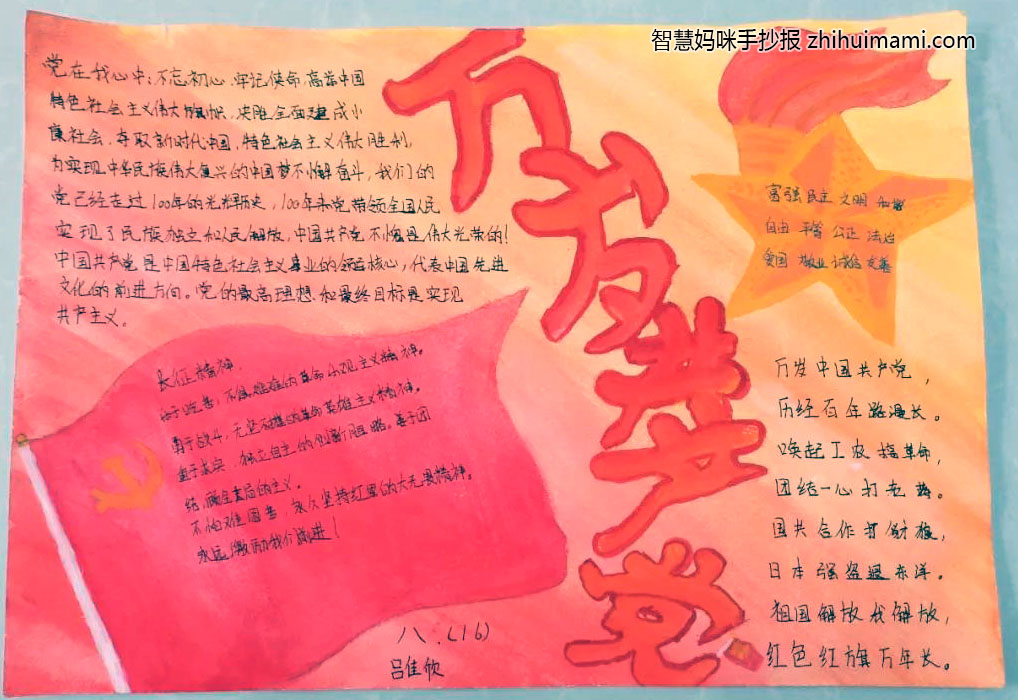 智慧妈咪手抄报 zhihuimami.com
党在我心中:不忘初心、牢记使命,高举中国
特色社会主义伟大旗帜,决胜全面建成小
康社会,夺取新时代中国,特色社会主义伟大胜利,
为实现中华民族伟大复兴的中国梦不懈奋斗,我们的
党已经走过100年的光辉历史,100年来党带领全国人民
实现了民族独立和人民解放,中国共产党不愧是伟大光荣的!
中国共产党是中国特色社会主义事业的领导核心,代表中国先进
文化的前进方向。党的最高理想和最终目标是实现
共产主义。
万岁共产党
富强 民主 文明 和谐
自由 平等 公正 法治
爱国 敬业 诚信 友善
长征精神。
不怕艰难的革命乐观主义精神。
勇于战斗,无坚不摧的革命英雄主义精神。
重于求实,独立自主的创新胆略。善于团
结,顾全大局的
不怕难困苦,永久坚持红军的大无畏精神。
永远激励我们前进!
万岁中国共产党,
历经百年路漫长。
唤起工农搞革命,
团结一心打老蒋。
国共合作打
日本强盗退东洋。
祖国解放我解放,
红色红旗万年长。
八.(16)
吕佳欣